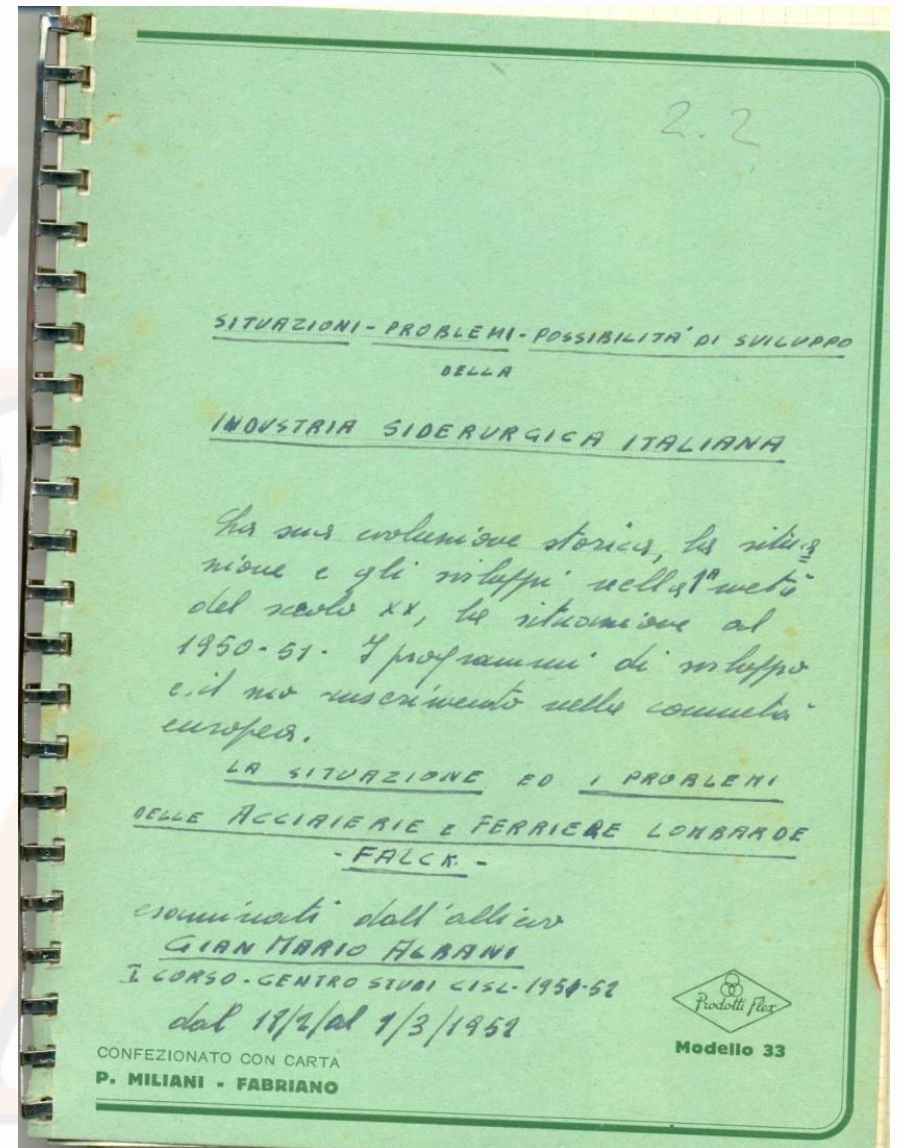 2.2
SITUAZIONI - PROBLEMI - POSSIBILITA' DI SVILUPPO
DELLA
INDUSTRIA SIDERURGICA ITALIANA
La sua evoluzione storica, la situa
zione e gli sviluppi nella 1ª metà
del secolo XX, la situazione al
1950-51. I programmi di sviluppo
e il suo inserimento nella comunità
europea.
LA SITUAZIONE ED I PROBLEMI
DELLE ACCIAIERIE E FERRIERE LOMBARDE
- FALCK -
esaminati dall'allievo
GIAN MARIO ALBANI
I CORSO - CENTRO STUDI CISL - 1951-52
dal 18/2/al 1/3/1952
Prodotti Flex
Modello 33
CONFEZIONATO CON CARTA
P. MILIANI - FABRIANO